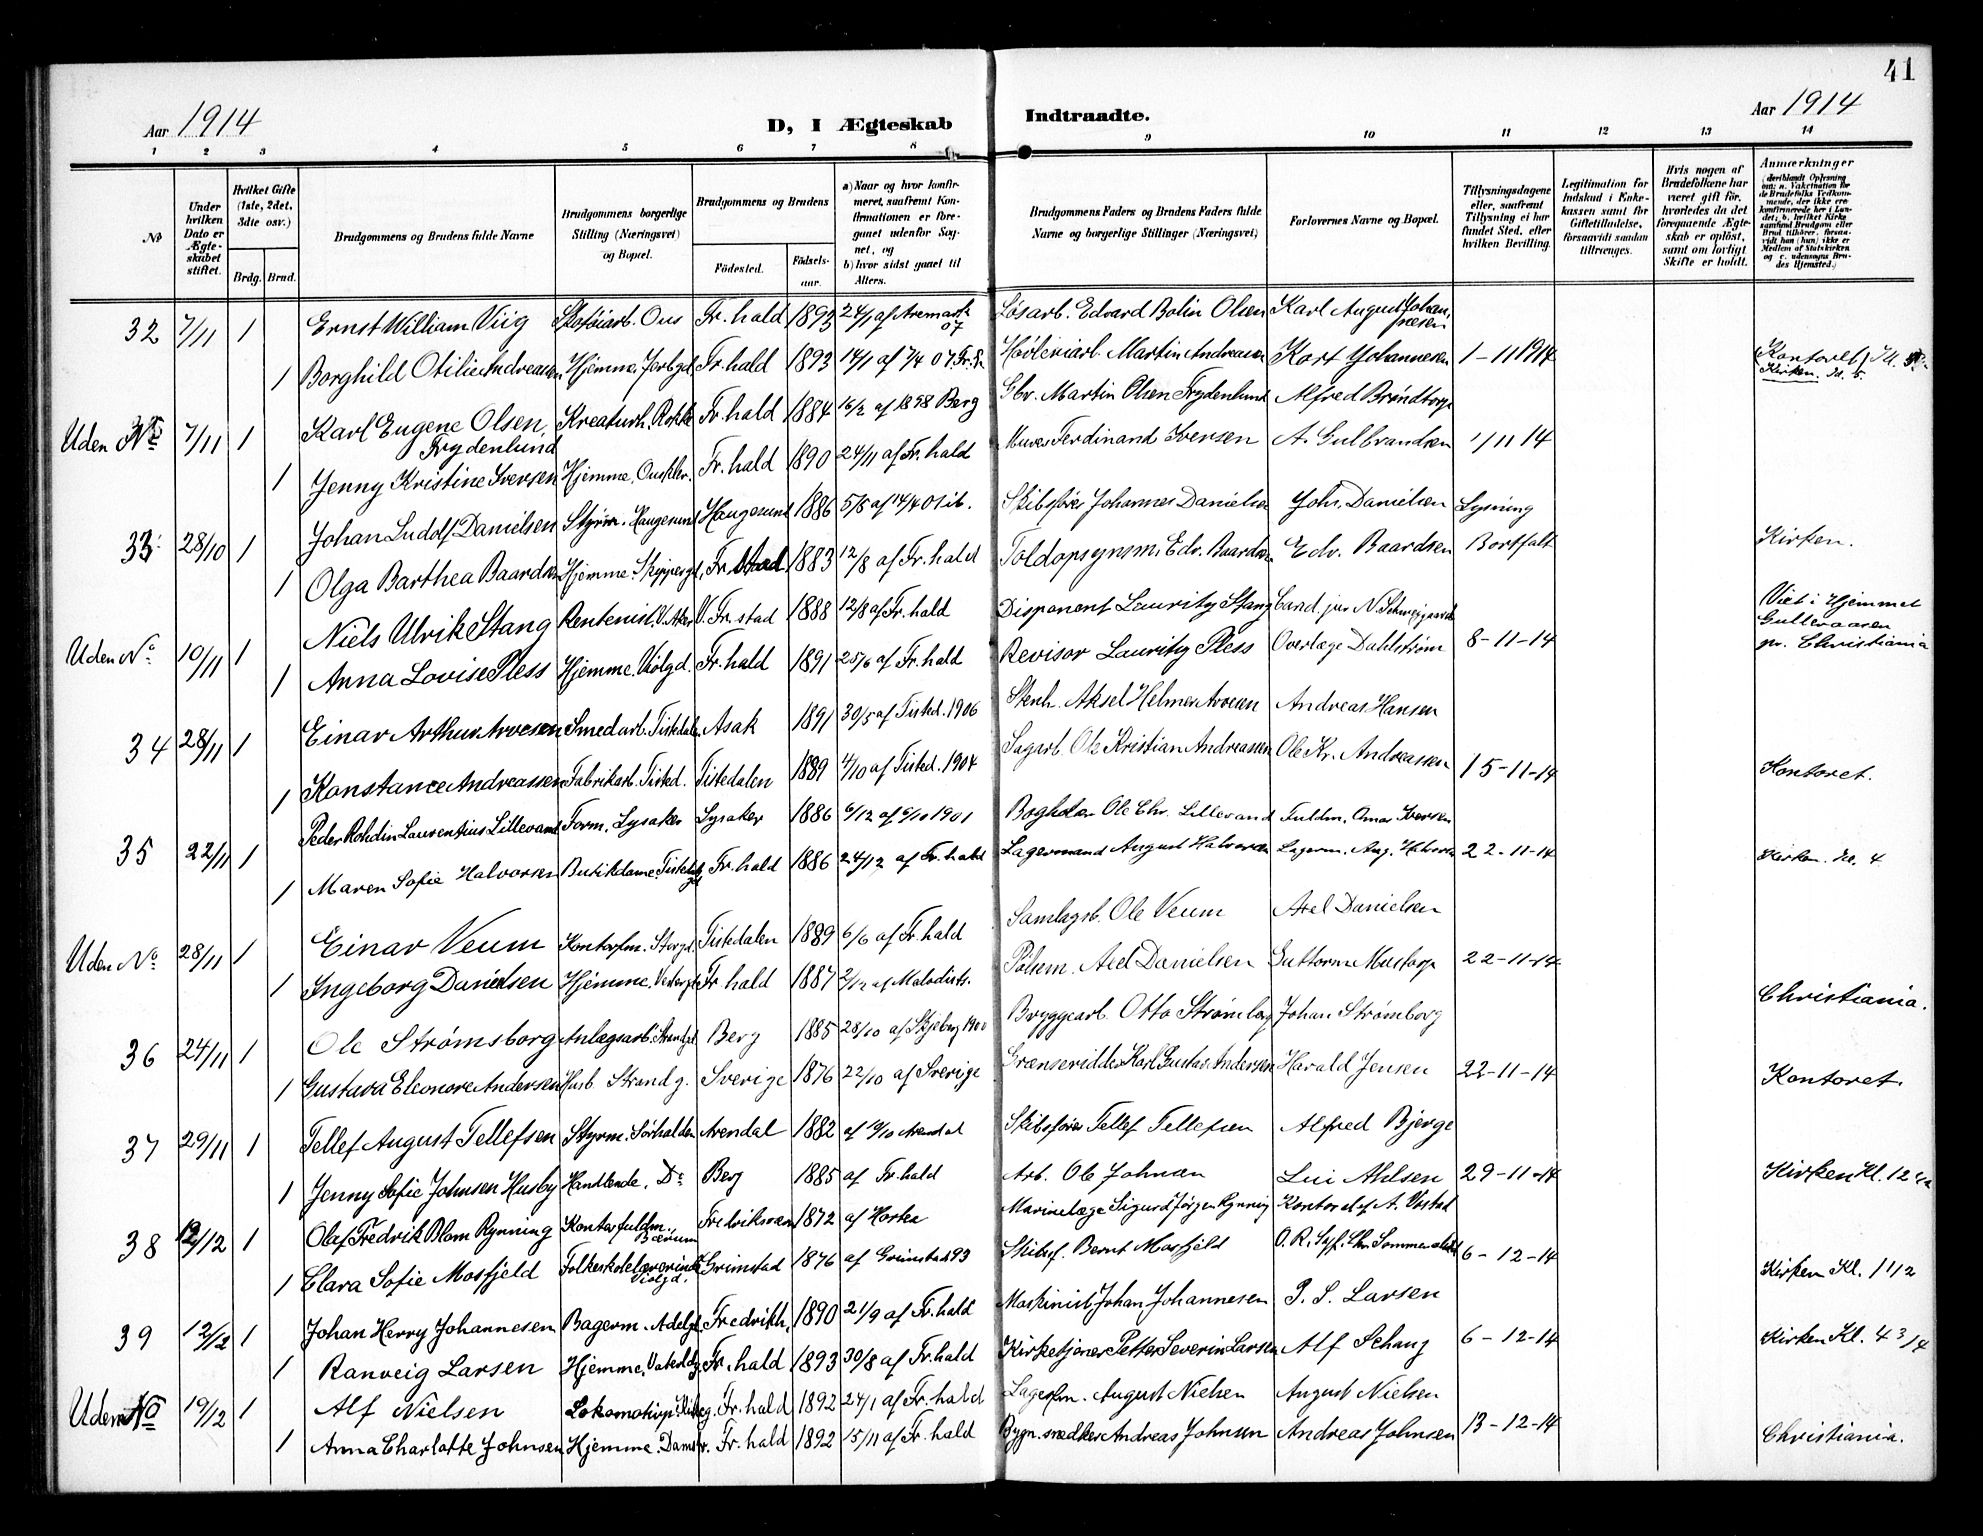 41
Aar 1914
D, I Ægteskab
Indtraadte.
Aar 1914
1 2 3 4 5 6 7 8 9 10 11 12 13 14
No
Under hvilken Dato er Ægteskabet stiftet.
Hvilket Gifte (1ste, 2det, 3die osv.)
Brdg. Brud.
Brudgommens og Brudens fulde Navne
Brudgommens borgerlige Stilling (Næringsvei) og Bopæl.
Brudgommens og Brudens
Födested.
Födsels-aar.
a) Naar og hvor konfirmeret, saafremt Konfirmationen er foregaaet udenfor Sognet, og
b) hvor sidst gaaet til Alters.
Brudgommens Faders og Brudens Faders fulde Navne og borgerlige Stillinger (Næringsvei)
Forlovernes Navne og Bopæl.
Tillysningsdagene eller, saafremt Tillysning ei har fundet Sted, efter hvilken Bevilling.
Legitimation for Indskud i Enkekassen samt for Giftetilladelse, forsaavidt saadan tiltrænges.
Hvis nogen af Brudefolkene har været gift för, hvorledes da det foregaaende Ægteskab er oplöst, samt om lovligt Skifte er holdt.
Anmærkninger
32 7/11 1 Ernst William Viig Skofóiarb. Ous Fr. hald 1893 24/1 af Aremark 07 Løsarb. Edvard Bolin Olsen Karl August Johannesen
1 Borghild Otilie Andreasen Hjemme, Fr. hald 1893 14/1 af 7/4 07 Høvleriarb. Martin Andreasen Kort Johannesen 1-11 1914 Kontoret Kirken. Kl. 5.
Uden No 7/11 1 Karl Eugene Olsen Frydenlund Kreaturh. Rokke Fr. hald 1884 16/2 af 1898 Berg Gbr. Martin Olsen Frydenlund Alfred Brøndtorp
1 Jenny Kristine Iversen Hjemme, Fr. hald 1890 24/11 af Fr. hald Murer Ferdinand Iversen A. Gulbrandsen 1/11 14
33 28/10 1 Johan Ludolf Danielsen Styrm. Haugesund Haugesund 1886 5/5 af 14/4 01 ib. Skibsfører Johannes Danielsen Johs. Danielsen Lysning
1 Olga Barthea Baardsen Hjemme. Fr. stad 1883 12/8 af Fr. hald Toldopsynsm. Edv. Baardsen Edv. Baardsen Bortfalt Kirken.
Uden No 10/11 1 Niels Ulrik Stang Rentenist. V. Aker V. Fr. stad 1888 12/8 af Fr. hald Disponent Lauritz Stang Cand. jur N. Schweigaard Viet i Hjemmet Gulleraasen
1 Anna Lovise Pless Hjemme. Violgd. Fr. hald 1891 25/6 af Fr. hald Revisor Lauritz Pless Overlæge Dahlstrøm 8-11-14 pr. Christiania
34 28/11 1 Einar Arthur Arvesen Smedarb. Tistedalen Asak 1891 30/5 af Tisted. 1906 Stenh. Aksel Helmer Arvesen Andreas Hansen
1 Konstance Andreassen Fabrikarb. Tisted. Tistedalen 1889 4/10 af Tisted. 1904 Sagarb. Ole Kristian Andreassen Ole Kr. Andreassen 15-11-14 Kontoret.
35 22/11 1 Peder Rohdin Laurentius Lillevand Form. Lysaker Lysaker 1886 6/12 af 6/10 1901 Bogholder Ole Chr. Lillevand Fuldm. Omar Iversen
1 Maren Sofie Halvorsen Butikdame. Fr. hald 1886 24/12 af Fr. hald Lagermand August Halvorsen Lagerm. Aug. Halvorsen 22-11-14 Kirken. Kl. 4
Uden No 28/11 1 Einar Veum Kontorfm. Storgd. Tistedalen 1889 6/6 af Fr. hald Samlagsb. Ole Veum Axel Danielsen
1 Ingeborg Danielsen Hjemme. Fr. hald 1887 2/12 af Metodists. Pølsem. Axel Danielsen Guttorm Mustorp 22-11-14 Christiania.
36 24/11 1 Ole Strømsborg Anlægsarb. Strandgd. Berg 1885 28/10 af Skjeberg 1900 Bryggearb. Otto Strømsborg Johan Strømborg
1 Gustava Eleonore Andersen Husb. Strandg. Sverige 1876 22/10 af Sverige Grænseridder Karl Gustav Andersen Harald Jensen 22-11-14 Kontoret.
37 29/11 1 Tellef August Tellefsen Styrm. Sørhalden Arendal 1882 af 10/10 Arendal Skibsfører Tellef Tellefsen Alfred Bjerge
1 Jenny Sofie Johnsen Husby Handlende. Do Berg 1885 af Fr. hald Arb. Ole Johnsen Ahlsen 29-11-14 Kirken Kl. 12
38 12/12 1 Olaf Fredrik Blom Rynning Kontorfuldm., Bærum Fredriksværn 1872 af Horten Marinelæge Sigurd Jørgen Rynning Kontorchef A. Ustad
1 Clara Sofie Mosfjeld Folkeskolelærerinde Violgd. Grimstad 1876 af Grimstad 93 Skibsf. Bernt Mosfjeld O. R. Sagf. Chr. Sommerfeldt 6-12-14 Kirken Kl. 1 1/2
39 12/12 1 Johan Herry Johannesen Bagerm. Adelgd. Fredrikh. 1890 21/9 af Fr. hald Maskinist Johan Johannesen P. S. Larsen
1 Ranveig Larsen Hjemme, Fr. hald 1893 30/8 af Fr. hald Kirketjener Petter Severin Larsen Alf Schaug 6-12-14 Kirken Kl. 4 3/4
Uden No 19/12 1 Alf Nielsen Lokomotivp. Fr. hald 1892 24/1 af Fr. hald Lagerfm. August Nielsen August Nielsen
1 Anna Charlotte Johnsen Hjemme. Fr. hald 1892 15/11 af Fr. hald Bygn. snedker Andreas Johnsen Andreas Johnsen 13-12-14 Christiania.